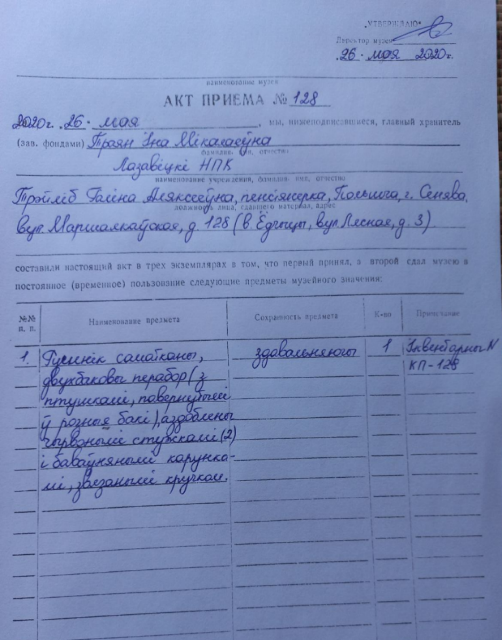 „УТВЕРЖДАЮ“
Директор музея
26 мая 2020г.
наименование музея
АКТ ПРИЕМА № 128
2020г. 26 мая, мы, нижеподписавшиеся, главный хранитель
(зав. фондами) Траян Іна Мікалаеўна
фамилия, имя, отчество
Лазавіцкі НПК
наименование учреждения, фамилия, имя, отчество
Галіна Аляксееўна, пенсіянерка, Польшча, г. Сенява,
должность лица, сдающего материал, адрес
вул. Маршалкаўская, д. 128 (в. вул. Лесная, д. 3)
составили настоящий акт в трех экземплярах в том, что первый принял, а второй сдал музею в
постоянное (временное) пользование следующие предметы музейного значения:
№№ п. п. Наименование предмета Сохранность предмета К-во Примечание
1. Ручнік саматканы, здавальняючы 1 Інвентарны №
двухбаковы перабор (з КП-128
птушкамі, павернутымі
ў розныя бакі), аздоблены
чырвонымі стужкамі (2)
і баваўнянымі карунка-
мі, звязанымі кручком.